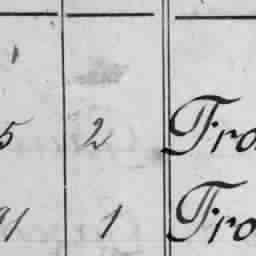 5 2 Fro
91 1 Fro